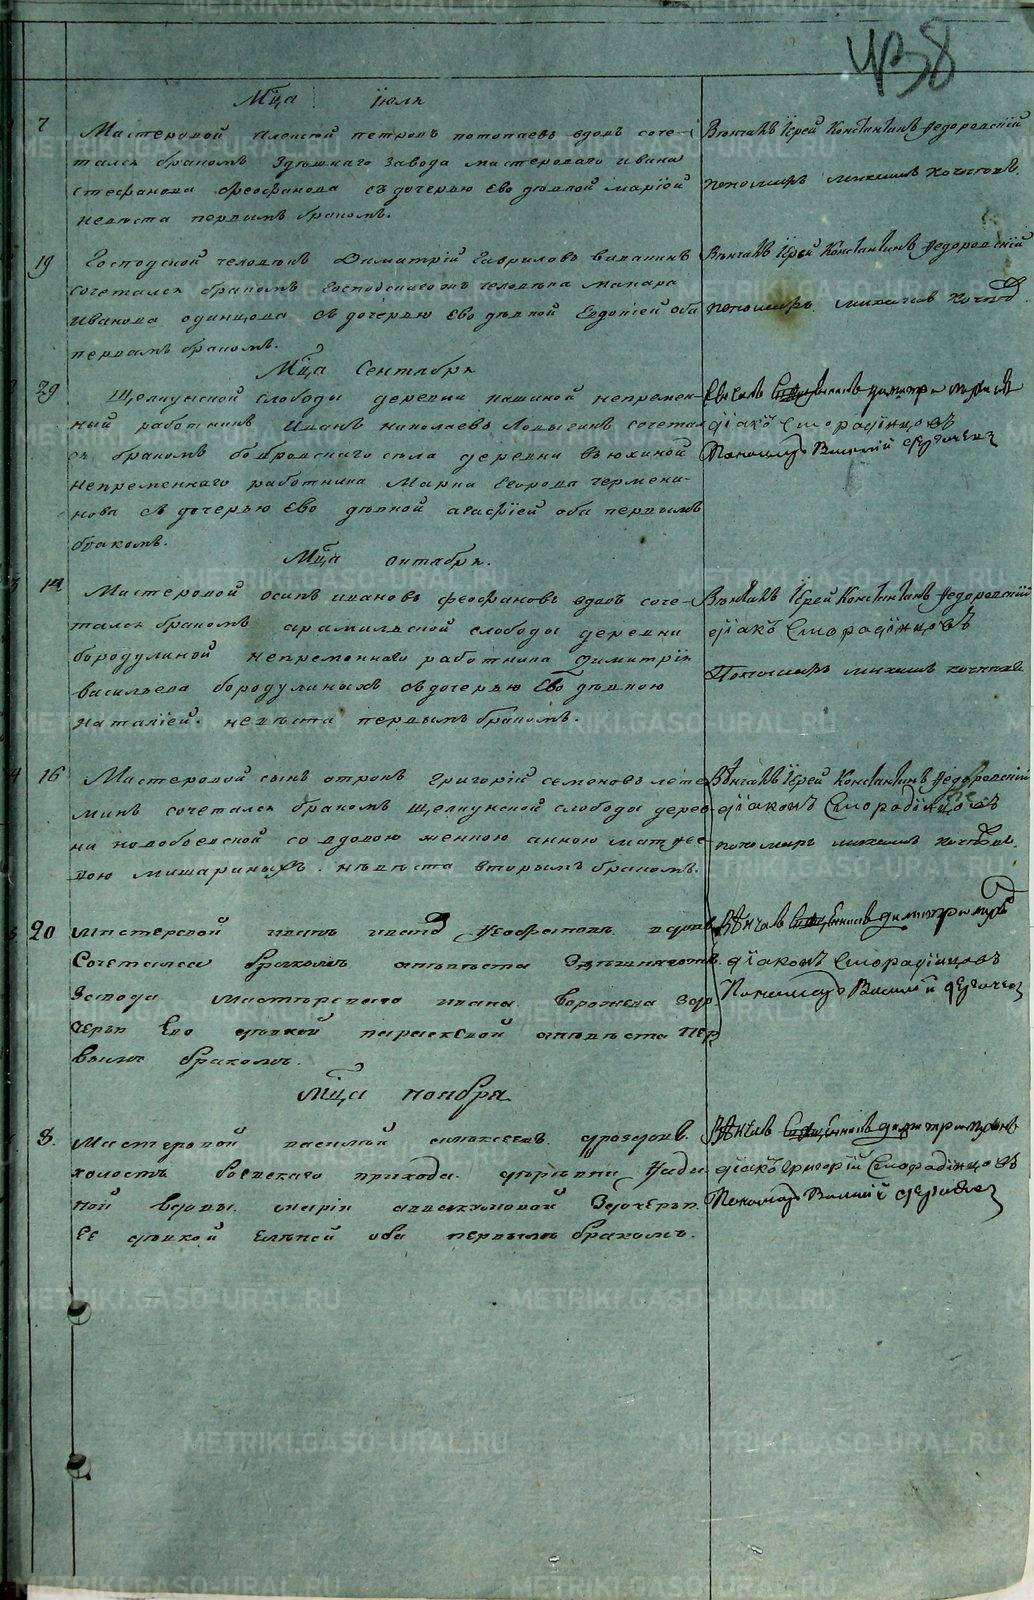 438
Мца Июля
7 Мастеровой Алексей петровъ потопаевъ вдовъ соче-
тался бракомъ Здешнаго Завода мастероваго ивана
стефанова феофанова съ дочерью ево девкой мариіей
невѣста первымъ бракомъ.
Вѣнчалъ Іерей Константинъ Федоровскій
пономарь михаилъ
19 Господской человѣкъ Димитрій Гавриловъ
сочетался бракомъ господскаго человѣка макара
Иванова одинцова съ дочерью ево девкой Евдокіей оба
первымъ бракомъ.
Вѣнчалъ Іерей Константинъ Федоровскій
пономарь михаилъ
Мца Сентября
29 Щелкунской слободы деревни пашиной непремен-
ный работникъ Иванъ николаевъ Ладыгинъ сочетал
ся бракомъ бобровскаго села деревни вьюхиной
непременнаго работника Марка Егорова чермени-
нова съ дочерью ево девкой агафіей оба первымъ
бракомъ.
діакъ Смородинцовъ
Пономарь Василій
Мца октября.
14 Мастеровой осипъ ивановъ феофановъ вдовъ соче-
тался бракомъ арамильской слободы деревни
бородулиной непременнаго работника Димитрія
васильева бородулиныхъ съ дочерью Ево девкою
наталіей. невѣста первымъ бракомъ.
Вѣнчалъ Іерей Константинъ Федоровскій
діакъ Смородинцовъ
Пономарь михаилъ
16 Мастеровой сынъ отрокъ григорій семеновъ
минъ сочетался бракомъ Щелкунской слободы дерев-
ни новобоевской со вдовою женкою анною матвее-
вою мишариныхъ. невѣста вторымъ бракомъ.
Вѣнчалъ Іерей Константинъ Федоровскій
діаконъ Смородинцовъ
пономарь михаилъ
20 мастеровой иванъ ивановъ Феофановъ вдовъ
Сочетался бракомъ аневѣста Здешняго
Завода мастерскаго ивана Воронцева Здо
черью Ево девкой параскевой аневѣста пер
вымъ бракомъ.
Вѣнчалъ Священникъ димитри
діаконъ Смородинцовъ
Пономарь Василій
Мца ноября
8. мастеровой василий алексеевъ дроздовъ.
холостъ боевскаго прихода деревни
ной вдовы. маріи аввакумовой Здочерью
ее девкой еленой оба первымъ бракомъ.
Вѣнчалъ Священникъ димитри
діакъ григорій Смородинцовъ
Пономарь Василій
METRIKI.GASO-URAL.RU